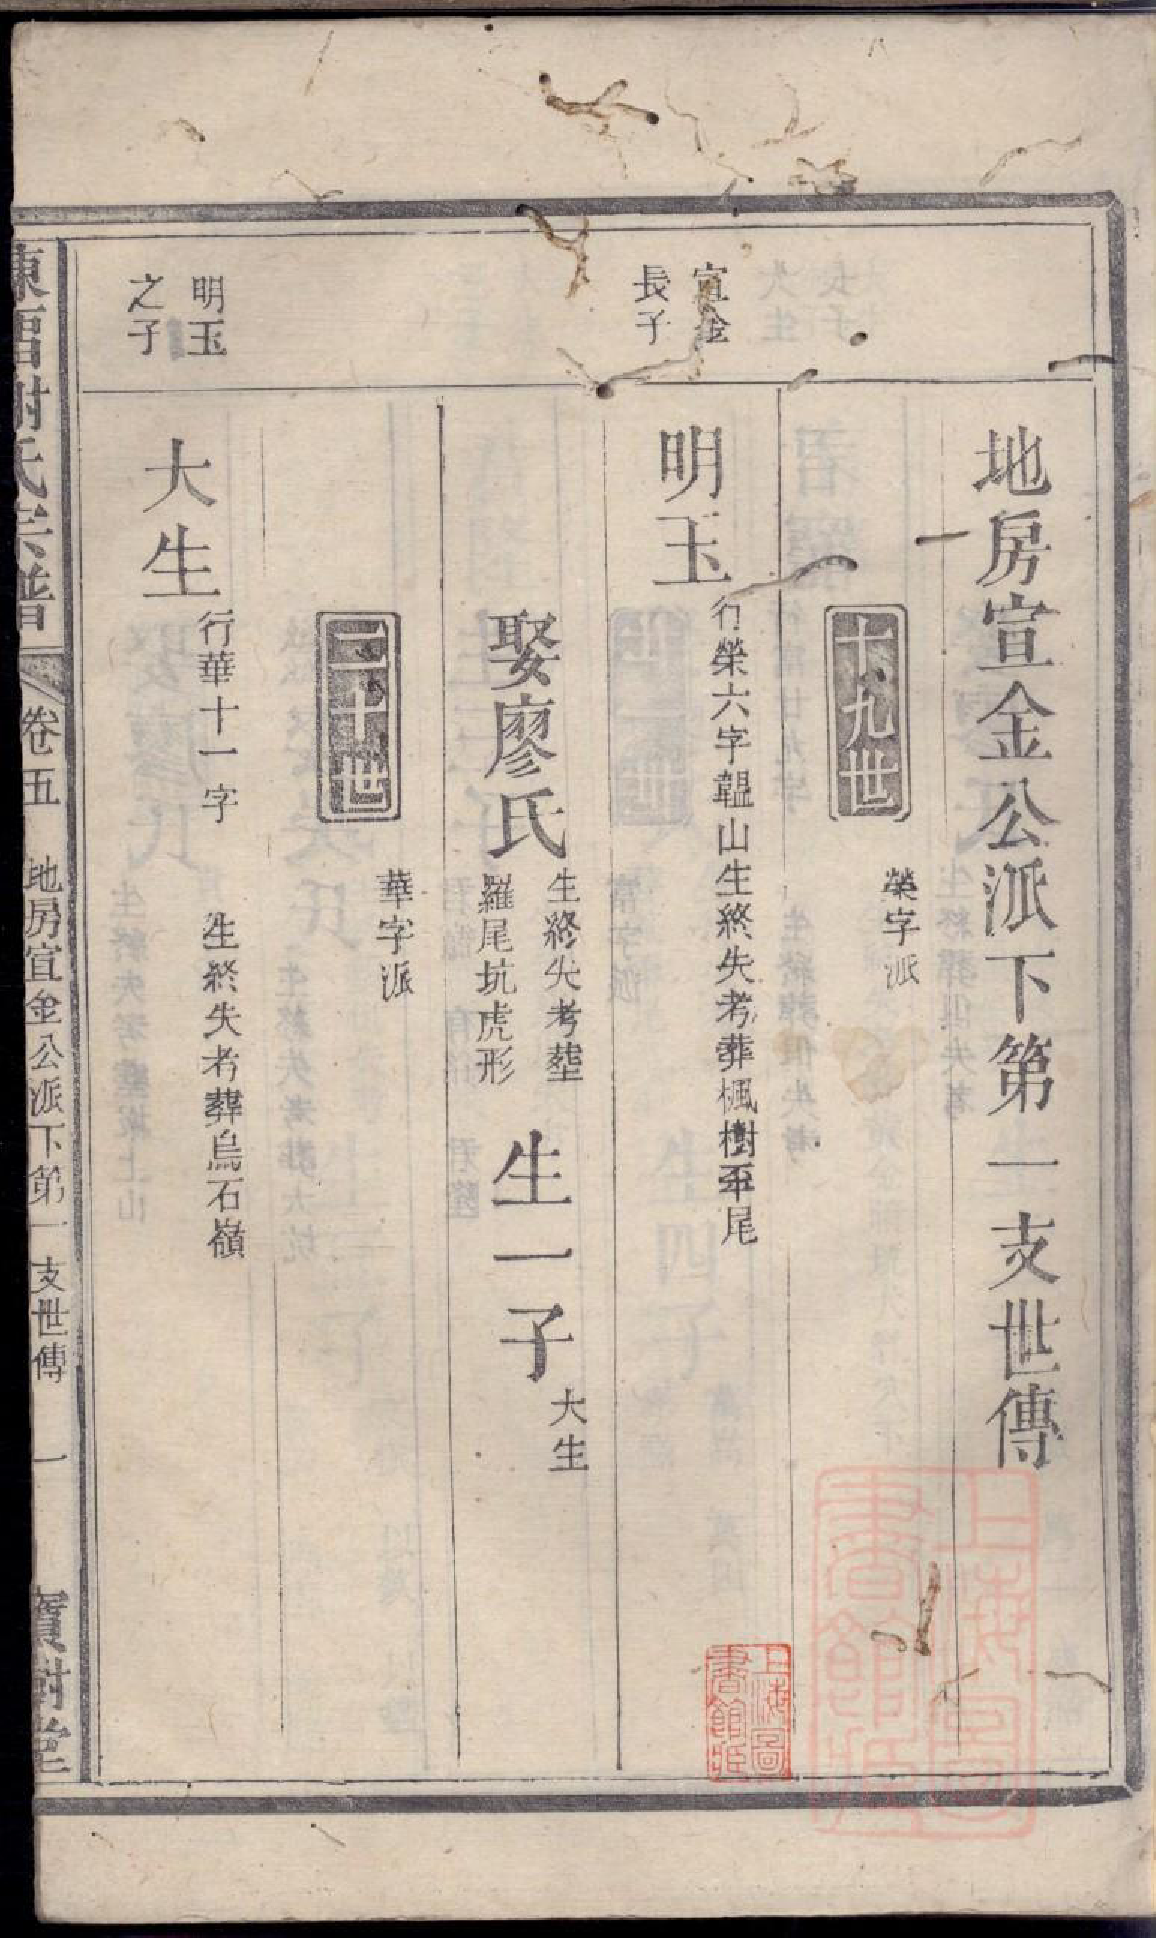 地房宣金公派下第一支世傳
十九世
榮字派
宣金
長子
明玉
行榮六字韞山生終失考葬楓樹坪尾
娶廖氏
生終失考塟
羅尾坑虎形
生一子
大生
二十世
華字派
明玉
之子
大生
行華十一字 生終失考葬烏石嶺
謝氏宗譜
卷五
地房宣金公派下第一支世傳
一
寶樹堂
上海圖
書館臧